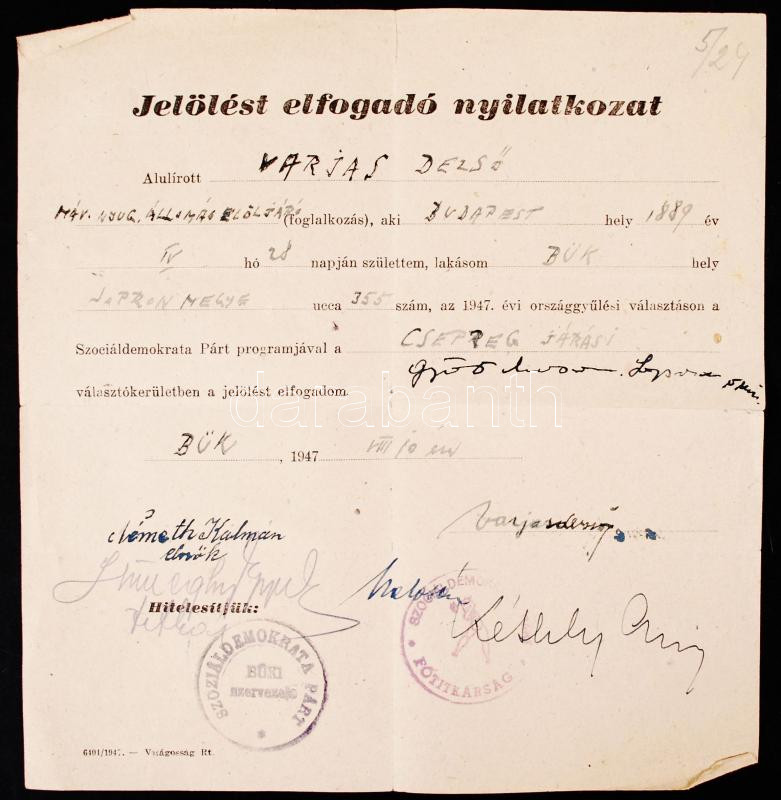 5/24
Jelölést elfogadó nyilatkozat
Alulírott VARJAS DEZSŐ
MÁV. NYUG. ÁLLOMÁS ELÖLJÁRÓ (foglalkozás), aki BUDAPEST hely 1889 év
IV hó 28 napján születtem, lakásom BÜK hely
SOPRON MEGYE ucca 355 szám, az 1947. évi országgyűlési választáson a
Szociáldemokrata Párt programjával a CSEPREG JÁRÁSI
választókerületben a jelölést elfogadom.
darabanth
BÜK, 1947 VIII 10 én
Németh Kálmán
elnök
Varjas Dezső
Hitelesítjük:
titkár
Kéthly Anna
SZOCIÁLDEMOKRATA PÁRT
BÜKI
szervezete
FŐTITKÁRSÁG
6491/1947. — Világosság Rt.